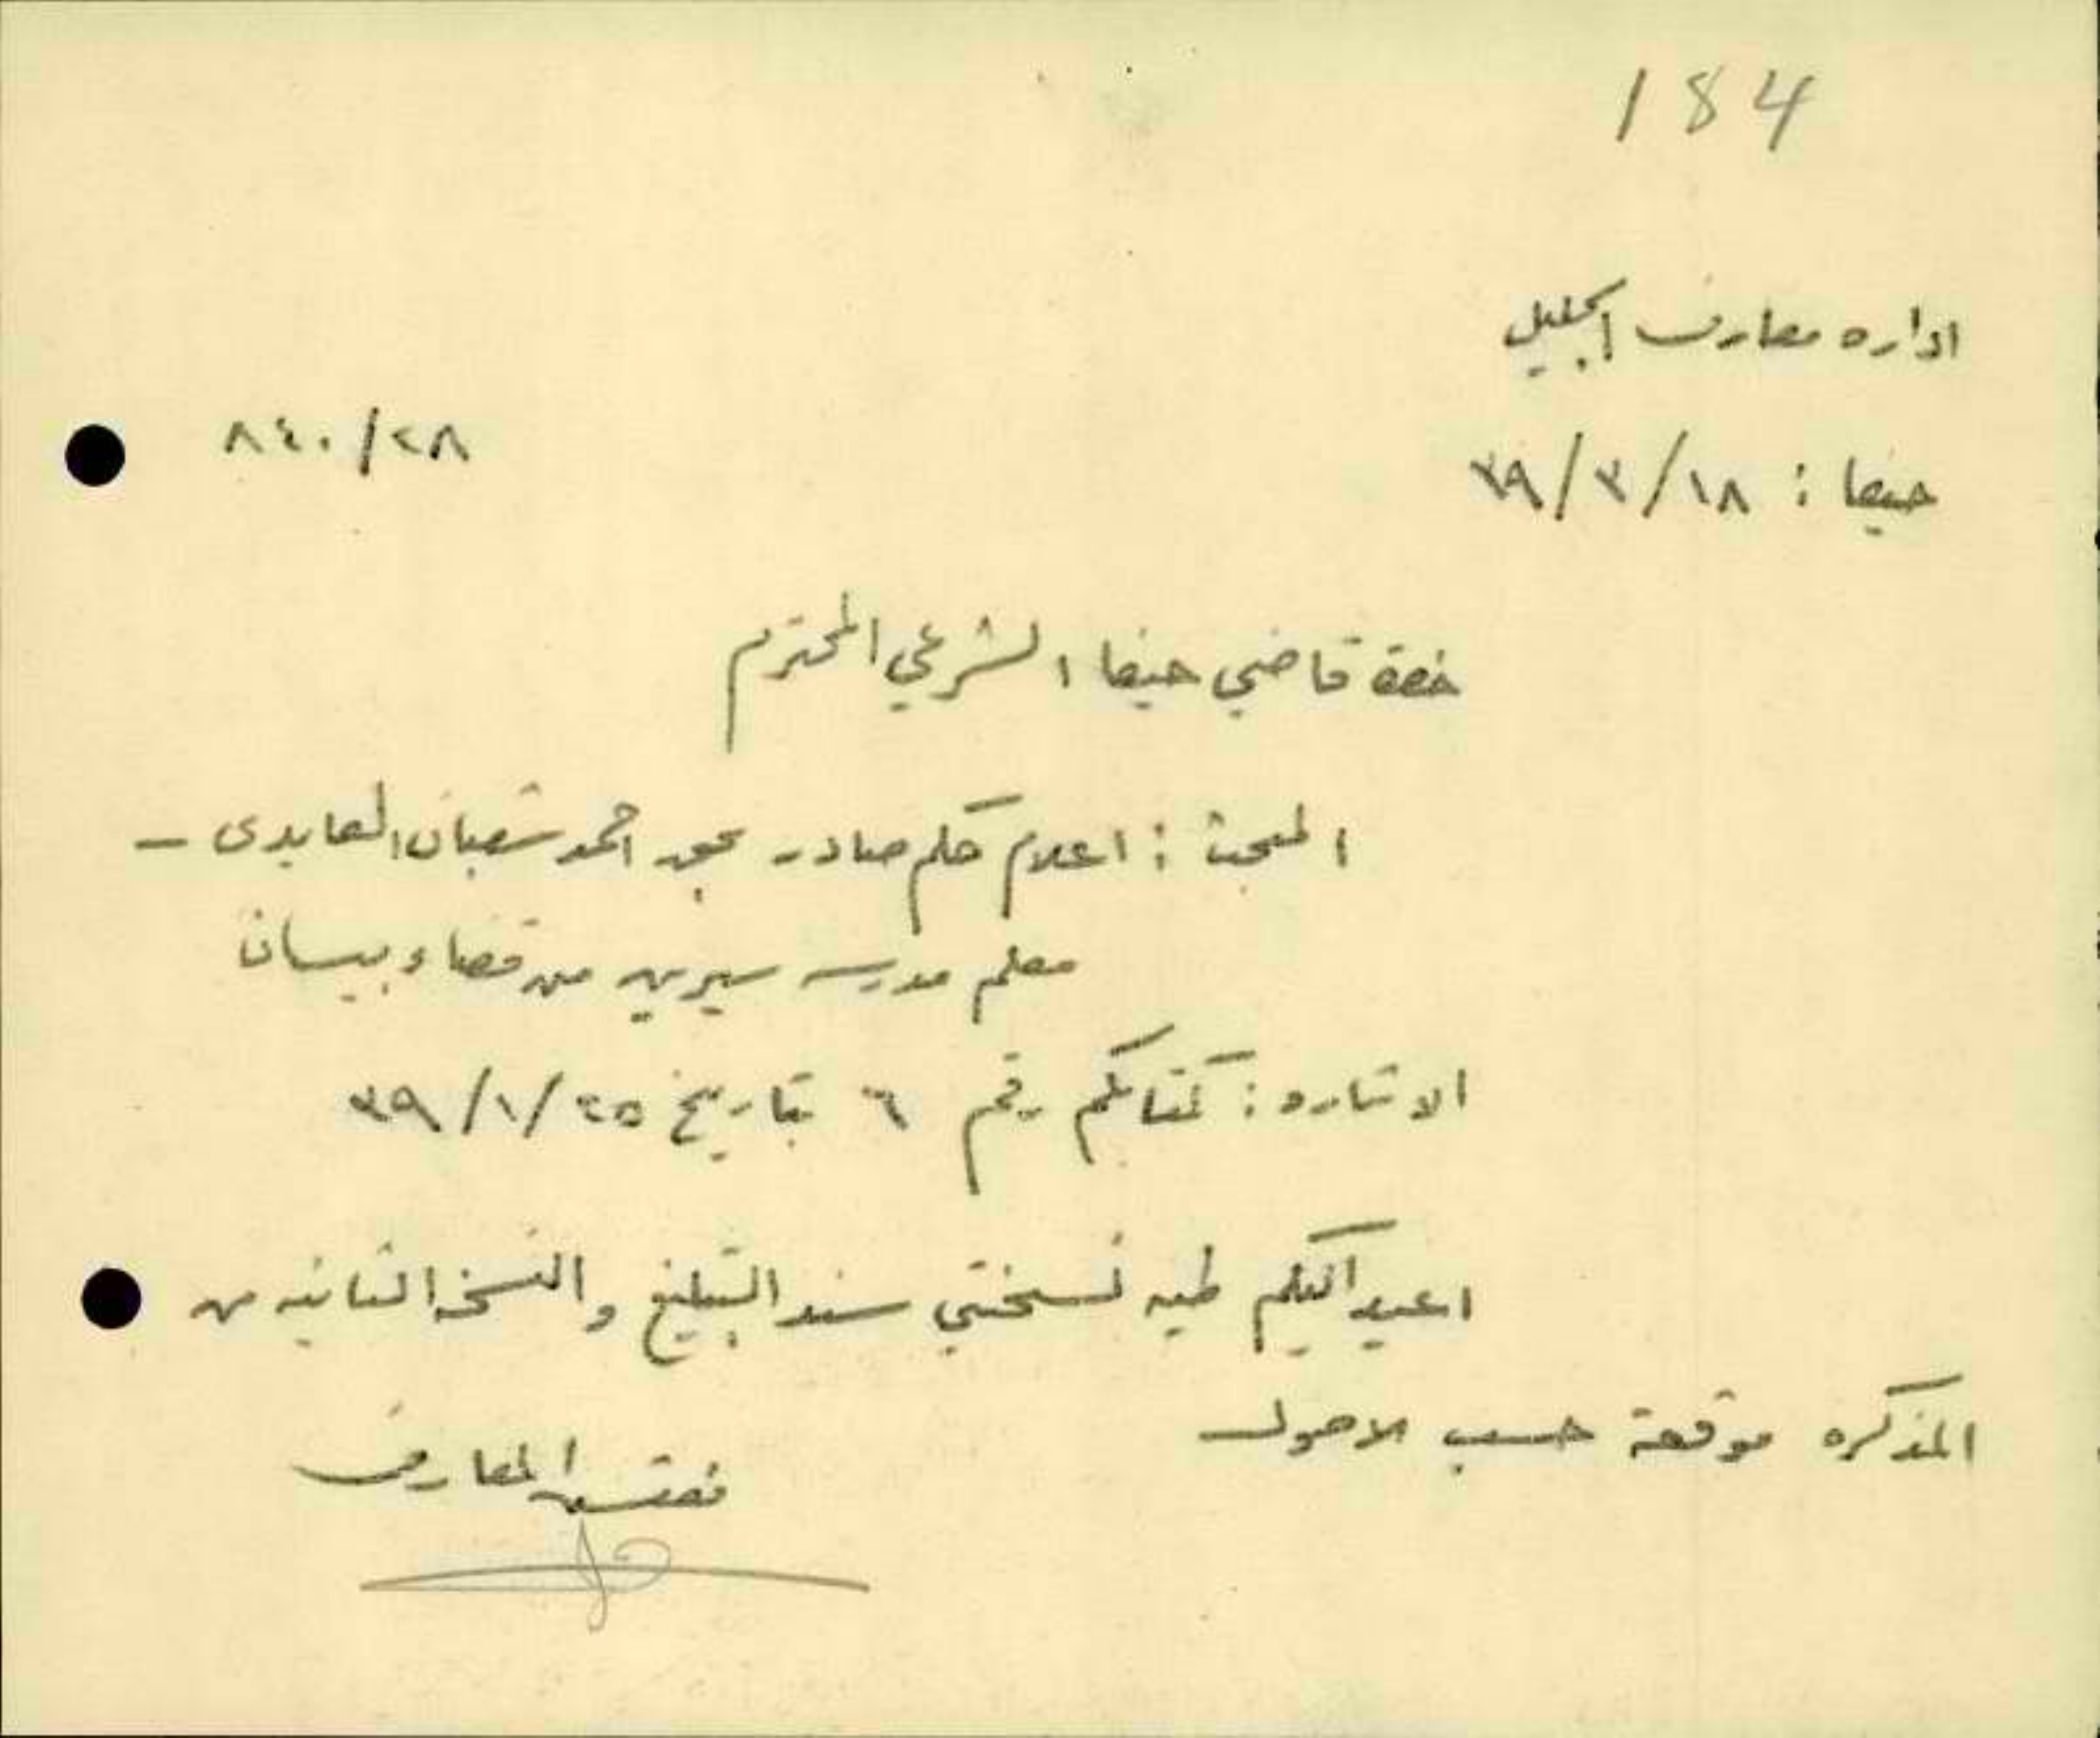 184
اداره معارف الجليل
٨٤٠/٢٨
حيفا : ٣٩/٣/١٨
حضرة قاضي حيفا الشرعي المحترم
المبحث : اعلام حكم صادر بحق احمد شعبان العايدى –
معلم مدرسه سيرين من قضاء بيسان
الاشاره : كتابكم رقم ٦ بتاريخ ٣٩/١/٢٥
اعيد اليكم طيه نسختي سند التبليغ والنسخه الثانيه من
المذكره موقعة حسب الاصول
مفتش المعارف